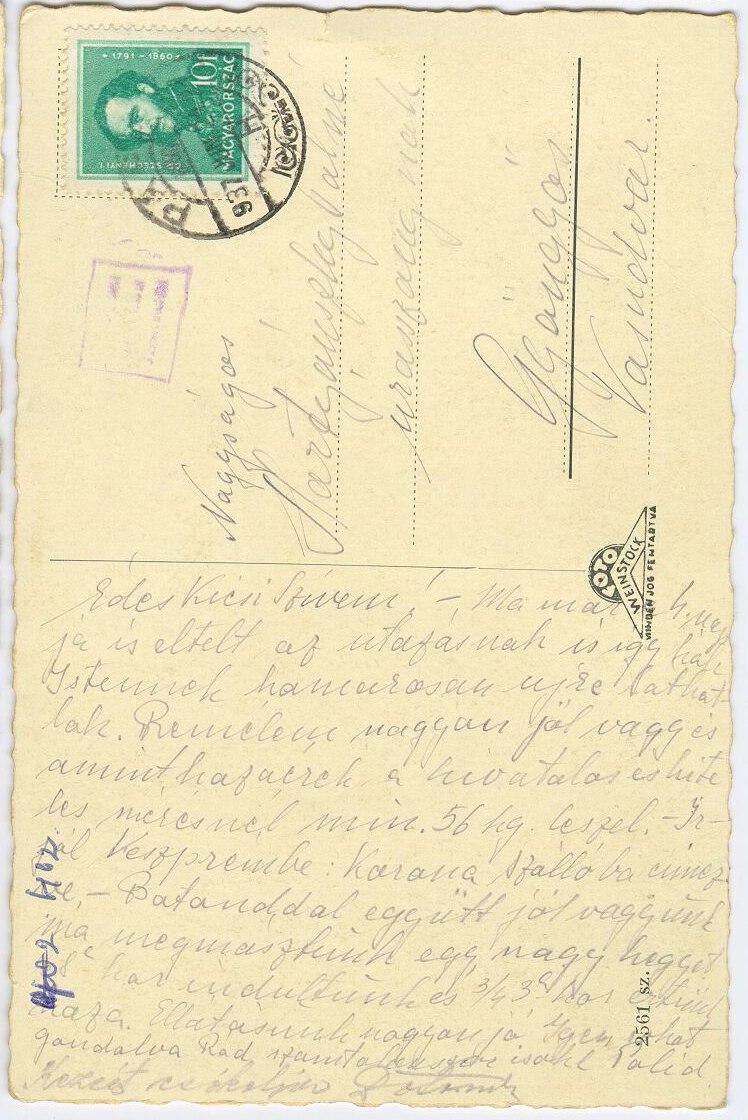 1791-1860
10f
MAGYARORSZÁG
GR. SZÉCHENYI I.
937
Nagyságos
uraszonynak
Gyöngyös
FOTO
WEINSTOCK
MINDEN JOG FENTARTVA
2561 sz.
Édes Kicsi Szívem! - Ma már 4. nap
ja is eltelt az utazásnak is így hál
Istennek hamarosan ujra láthat-
lak. Remélem nagyon jól vagy és
amint hazaérek a hivatalos és hite
les mérésnél min. 56 kg. leszel. - Ír-
jál Veszprémbe: Korona Szállóba címez
ve, - együtt jól vagyunk
ma megmásztunk egy nagy hegyet
8 kor indultunk és 3/4 3 kor értünk
haza. Ellátásunk nagyon jó
gondolva Rád számtalanszor csókol Palid.
Kezét csókolja